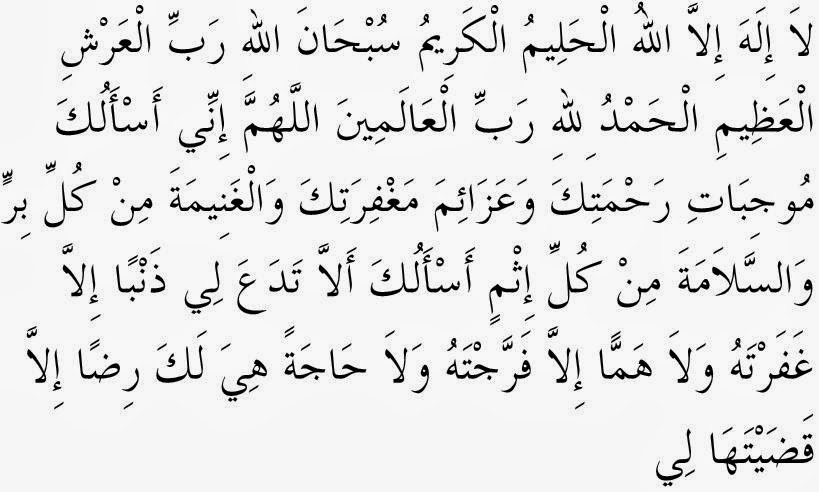 لاَ إِلَهَ إِلاَّ اللهُ الْحَلِيمُ الْكَرِيمُ سُبْحَانَ اللهِ رَبِّ الْعَرْشِ
الْعَظِيمِ الْحَمْدُ لِلهِ رَبِّ الْعَالَمِينَ اللَّهُمَّ إِنِّي أَسْأَلُكَ
مُوجِبَاتِ رَحْمَتِكَ وَعَزَائِمَ مَغْفِرَتِكَ وَالْغَنِيمَةَ مِنْ كُلِّ بِرٍّ
وَالسَّلاَمَةَ مِنْ كُلِّ إِثْمٍ أَسْأَلُكَ أَلاَّ تَدَعَ لِي ذَنْبًا إِلاَّ
غَفَرْتَهُ وَلاَ هَمًّا إِلاَّ فَرَّجْتَهُ وَلاَ حَاجَةً هِيَ لَكَ رِضًا إِلاَّ
قَضَيْتَهَا لِي